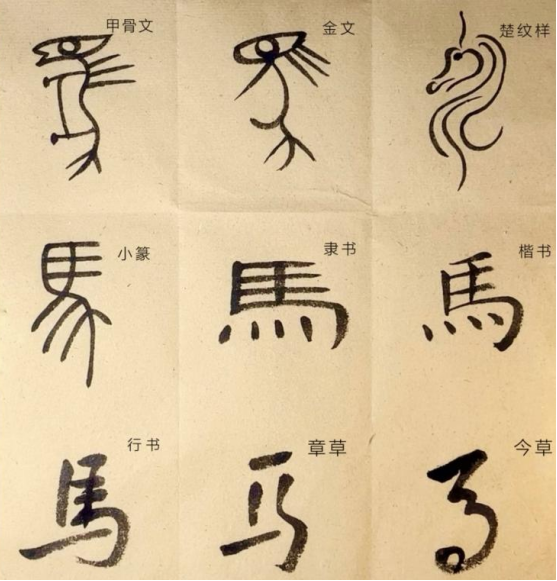 甲骨文
金文
楚纹样
小篆
馬
隶书
馬
楷书
馬
行书
馬
章草
马
今草